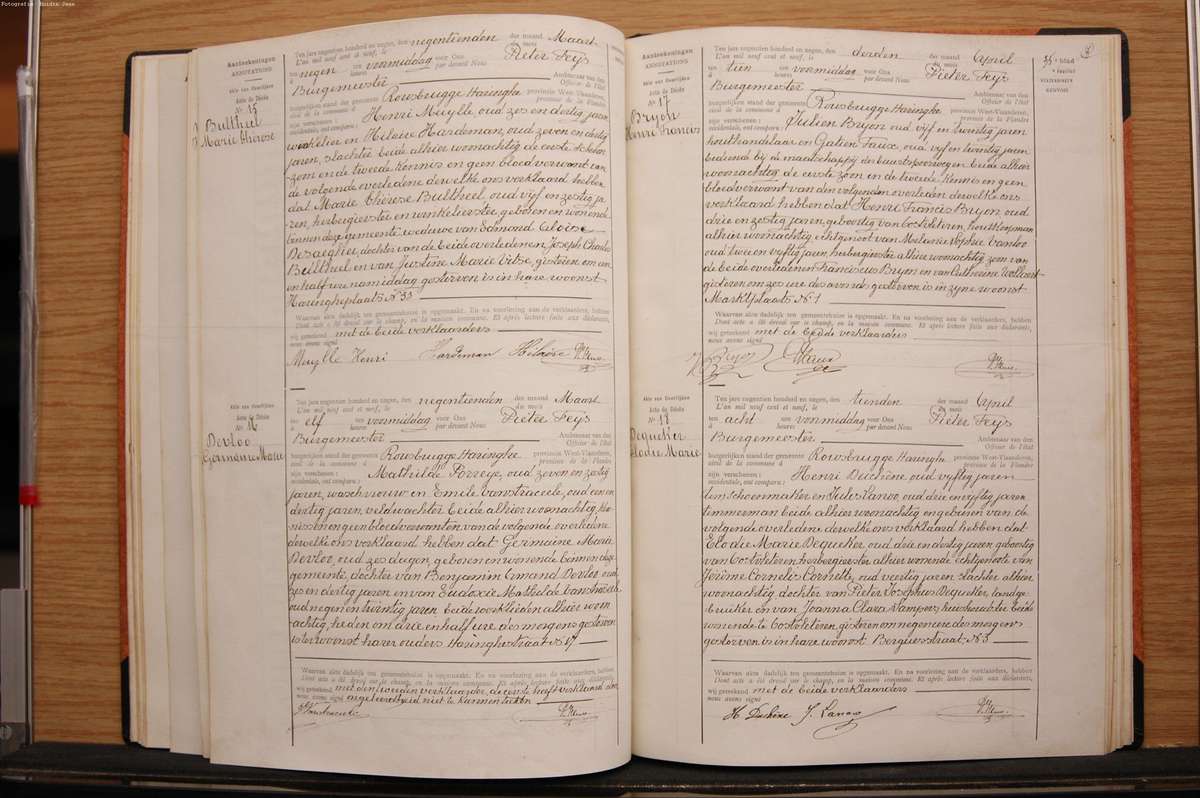 Fotografie: Huidts Jean
Aanteekeningen
ANNOTATIONS
Akte van Overlijden
Acte de Décès
N° 15
Bultheel
Marie Thérèse
Ten jare negentien honderd en negen, den negentienden der maand Maart
L'an mil neuf cent et neuf, le du mois
ten negen ure voormiddag voor Ons Pieter Feys
à heures par devant Nous
Burgemeester Ambtenaar van den
Officier de l'état
burgerlijken stand der gemeente Rousbrugge Haringhe provincie West-Vlaanderen,
civil de la commune d province de la Flandre
zijn verschenen : Henri Muylle, oud zes en dertig jaren
occidentale, ont comparu :
winkelier en Hilaire Hardeman, oud zeven en dertig
jaren, slachter beide alhier woonachtig de eerste schoon
zoon en de tweede kennis en geen bloedverwant van
de volgende overledene dewelke ons verklaard hebben
dat Marie Thérèse Bultheel oud vijf en zestig ja
ren, herbergierster en winkelierster, geboren en wonende
binnen deze gemeente weduwe van Edmond Aloïse
Desaeghier, dochter van de beide overledenen Joseph Charles
Bultheel en van Justine Marie Titse, gisteren om een
en half ure namiddag gestorven is in hare woonst
Haringheplaats N° 33
Waarvan akte dadelijk ten gemeentehuize is opgemaakt. En na voorlezing aan de verklaarders, hebben
Dont acte a été dressé sur le champ, en la maison commune. Et après lecture faite aux déclarants,
wij geteekend met de beide verklaarders
nous avons signé
Muylle Henri Hardeman Hilaire
Akte van Overlijden
Acte de Décès
N° 16
Devloo
Germaine Marie
Ten jare negentien honderd en negen, den negentienden der maand Maart
L'an mil neuf cent et neuf, le du mois
ten elf ure voormiddag voor Ons Pieter Feys
à heures par devant Nous
Burgemeester Ambtenaar van den
Officier de l'état
burgerlijken stand der gemeente Rousbrugge Haringhe provincie West-Vlaanderen,
civil de la commune d province de la Flandre
zijn verschenen : Mathilde Torreye, oud zeven en zestig
occidentale, ont comparu :
jaren, waschvrouw en Emile Vanstraceele, oud een en
dertig jaren, veldwachter beide alhier woonachtig ken
nissen en geen bloedverwanten van de volgende overledene
dewelke ons verklaard hebben dat Germaine Marie
Devloo, oud zes dagen, geboren en wonende binnen deze
gemeente, dochter van Benjamin Amand Devloo oud
zes en dertig jaren en van Eudoxie Mathilde Vanstraceele
oud negen en twintig jaren beide werklieden alhier woon
achtig, heden om drie en half ure des morgens gestorven
is ter woonst harer ouders Haringhestraat N° 17
Waarvan akte dadelijk ten gemeentehuize is opgemaakt. En na voorlezing aan de verklaarders, hebben
Dont acte a été dressé sur le champ, en la maison commune. Et après lecture faite aux déclarants,
wij geteekend met den tweeden verklaarder, de eerste heeft verklaard
nous avons signé ongeletterdheid niet te kunnen teeken
Akte van Overlijden
Acte de Décès
N° 17
Bryon
Henri Francis
Ten jare negentien honderd en negen, den derden der maand April
L'an mil neuf cent et neuf, le du mois
ten tien ure voormiddag voor Ons Pieter Feys
à heures par devant Nous
Burgemeester Ambtenaar van den
Officier de l'Etat
burgerlijken stand der gemeente Rousbrugge Haringhe provincie West-Vlaanderen,
civil de la commune d province de la Flandre
zijn verschenen : Julien Bryon oud vijf en twintig jaren
occidentale, ont comparu :
houthandelaar en Gatien Faux, oud vijf en twintig jaren
bediende bij de maatschappij der buurtspoorwegen beide alhier
woonachtig de eerste zoon en de tweede kennis en geen
bloedverwant van den volgenden overleden dewelke ons
verklaard hebben dat Henri Francis Bryon oud
drie en zestig jaren, geboortig van Oostvleteren, houtkoopman
alhier woonachtig, echtgenoot van Melanie Sophie Vanloo
oud twee en vijftig jaren, herbergierster alhier woonachtig zoon van
de beide overledenen Franciscus Bryon en van Catherine Vollaert
gisteren om zes ure des avonds gestorven is in zyne woonst
Marktplaats N° 1
Waarvan akte dadelijk ten gemeentehuize is opgemaakt. En na voorlezing aan de verklaarders, hebben
Dont acte a été dressé sur le champ, en la maison commune. Et après lecture faite aux déclarants,
wij geteekend met de beide verklaarders
nous avons signé
Bryon
Akte van Overlijden
Acte de Décès
N° 18
Dequeker
Elodie Marie
Ten jare negentien honderd en negen, den tienden der maand April
L'an mil neuf cent et neuf, le du mois
ten acht ure voormiddag voor Ons Pieter Feys
à heures par devant Nous
Burgemeester Ambtenaar van den
Officier de l'Etat
burgerlijken stand der gemeente Rousbrugge Haringhe provincie West-Vlaanderen,
civil de la commune d province de la Flandre
zijn verschenen : Henri Duchêne oud vyftig jaren
occidentale, ont comparu :
schoenmaker en Jules Lanoo, oud drie en vyftig jaren
timmerman beide alhier woonachtig en gebueren van de
volgende overledene dewelke ons verklaard hebben dat
Elodie Marie Dequeker, oud drie en dertig jaren, geboortig
van Oostvleteren herbergierster alhier wonende echtgenote van
Jerôme Cornelis Cornette, oud veertig jaren slachter alhier
woonachtig, dochter van Pieter Josephus Dequeker, landge
bruiker en van Joanna Clara Dampers, huishoudster beide
wonende te Oostvleteren, gisteren om negen ure des morgens
gestorven is in hare woonst Berguesstraat N° 3
Waarvan akte dadelijk ten gemeentehuize is opgemaakt. En na voorlezing aan de verklaarders, hebben
Dont acte a été dressé sur le champ, en la maison commune. Et après lecture faite aux déclarants,
wij geteekend met de beide verklaarders
nous avons signé
H Duchêne J. Lanoo